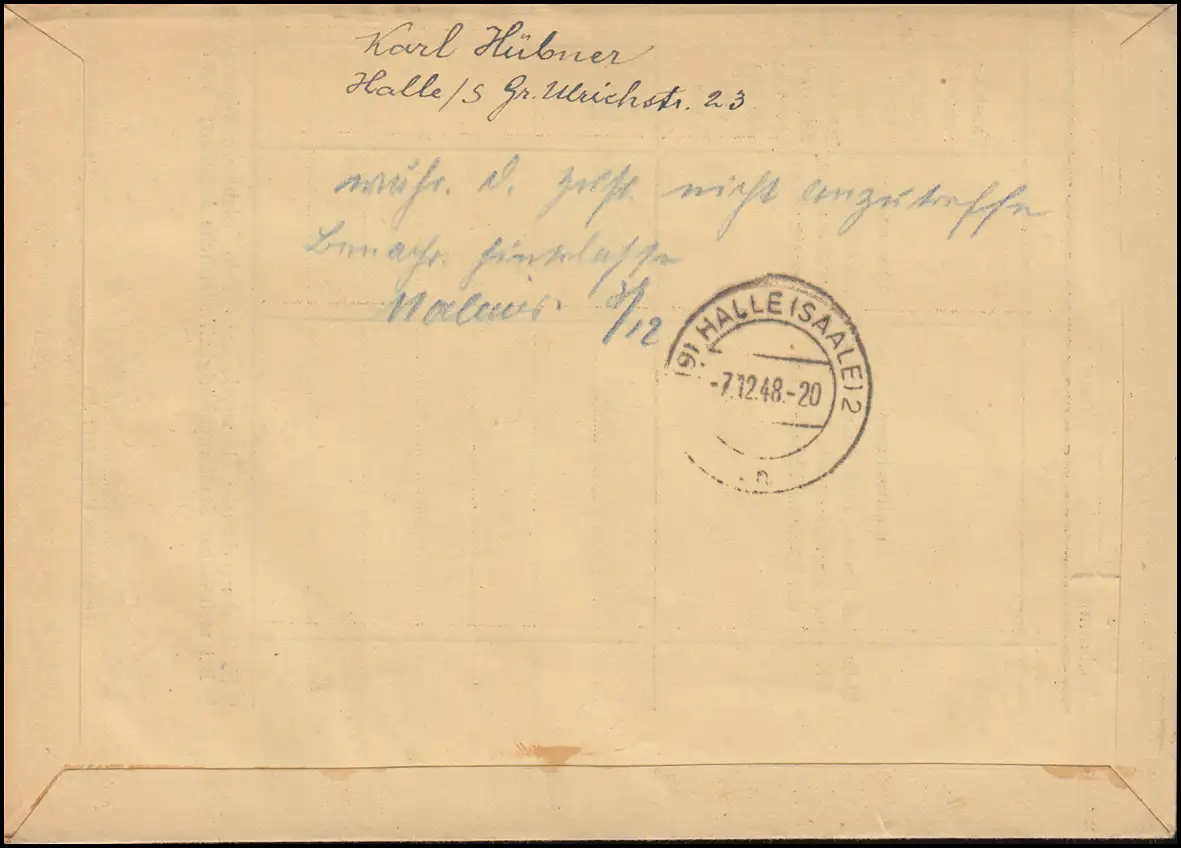 Karl Hübner
Halle/S Gr. Ulrichstr. 23
währ. d. Zust. nicht anzutreffen
Benachr. hinterlassen
/12
(19) HALLE (SAALE) 2
-7.12.48.-20
n